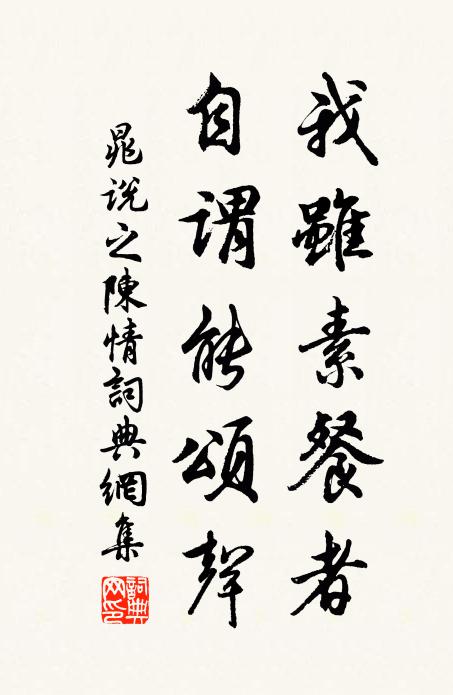 我雖素餐者
自謂能頌聲
晁說之陳情詞典網集
詞典網印